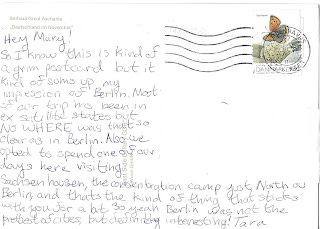 Barbara Grosz Aschaffs
„Deutschland im November"
Hey Mary!
So I know this is kind of
a grim postcard but it
kind of sums up my
impression of Berlin. Most
of our trip has been in
ex satellite states but
NO WHERE was that so
clear as in Berlin. Also we
opted to spend one of our
days here visiting
Sachsenhausen, the concentration camp just North ou
Berlin and thats the kind of thing that sticks
with you for a bit. So yeah Berlin was not the
prettiest of cities, but definitely interesting! Tara